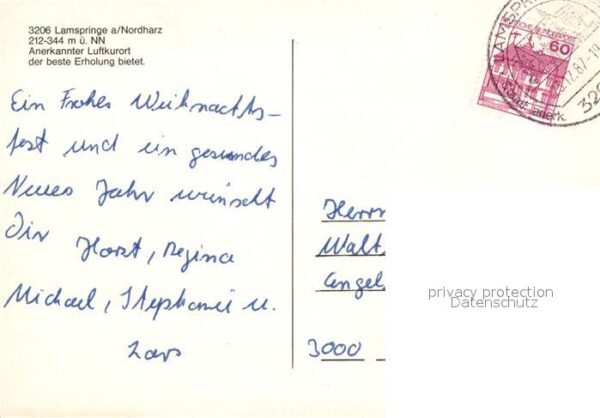 3206 Lamspringe a/Nordharz
212-344 m ü. NN
Anerkannter Luftkurort
der beste Erholung bietet.
Ein Frohes Weihnachts-
fest und ein gesundes
Neues Jahr wünscht
Dir Horst, Regina
Michael, Stephanie u.
Lars
Herrn
Walt.
Engel
3000
60
LAMSPR
.12.87-10
320
anerk.
privacy protection
Datenschutz